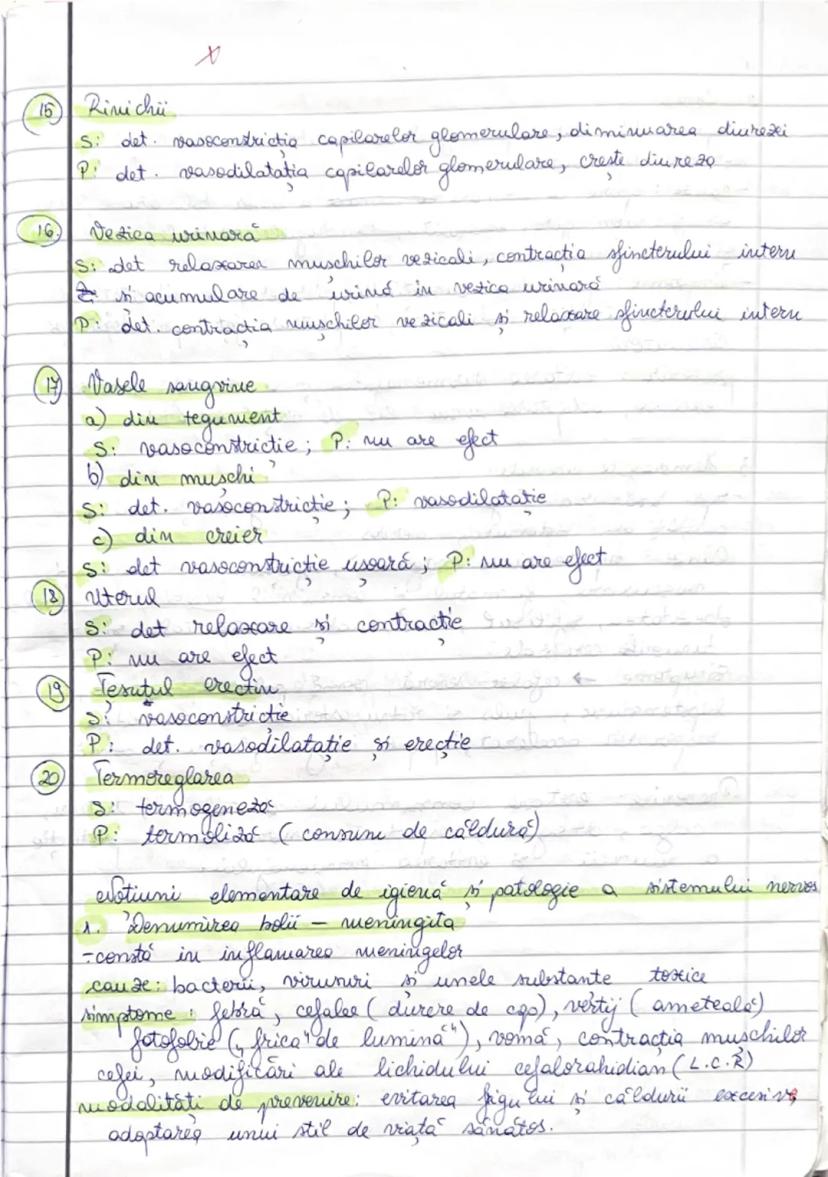 15 Rinichii
S: det. vasoconstricția capilarelor glomerulare, diminuarea diurezei
P: det. vasodilatația capilarelor glomerulare, crește diureza
16. Vezica urinară
S: det relaxarea mușchilor vezicali, contracția sfincterului intern
și acumulare de urină in vezica urinară
P: det. contracția mușchilor vezicali și relaxare sfincterului intern
17 Vasele sangvine
a) din tegument
S: vasoconstricție; P: nu are efect
b) din mușchi
S: det. vasoconstricție; P: vasodilatație
c) din creier
S: det vasoconstricție ușoară; P: nu are efect
18 Uterul
S: det relaxare și contracție
P: nu are efect
19 Țesutul erectin
S: vasoconstricție
P: det. vasodilatație și erecție
20 Termoreglarea
S: termogeneza
P: termoliză (consum de căldură)
Noțiuni elementare de igienă și patologie a sistemului nervos
1. Denumirea bolii – meningita
- constă in inflamarea meningelor
cauze: bacterii, virusuri și unele substante toxice
simptome: febră, cefalee (durere de cap), vertij (ameteală)
fotofobie („frica" de lumină"), vomă, contracția muschilor
cefei, modificări ale lichidului cefalorahidian (L.C.R)
modalităti de prevenire: evitarea frigului și căldurii excesive,
adoptarea unui stil de viață sănătos.